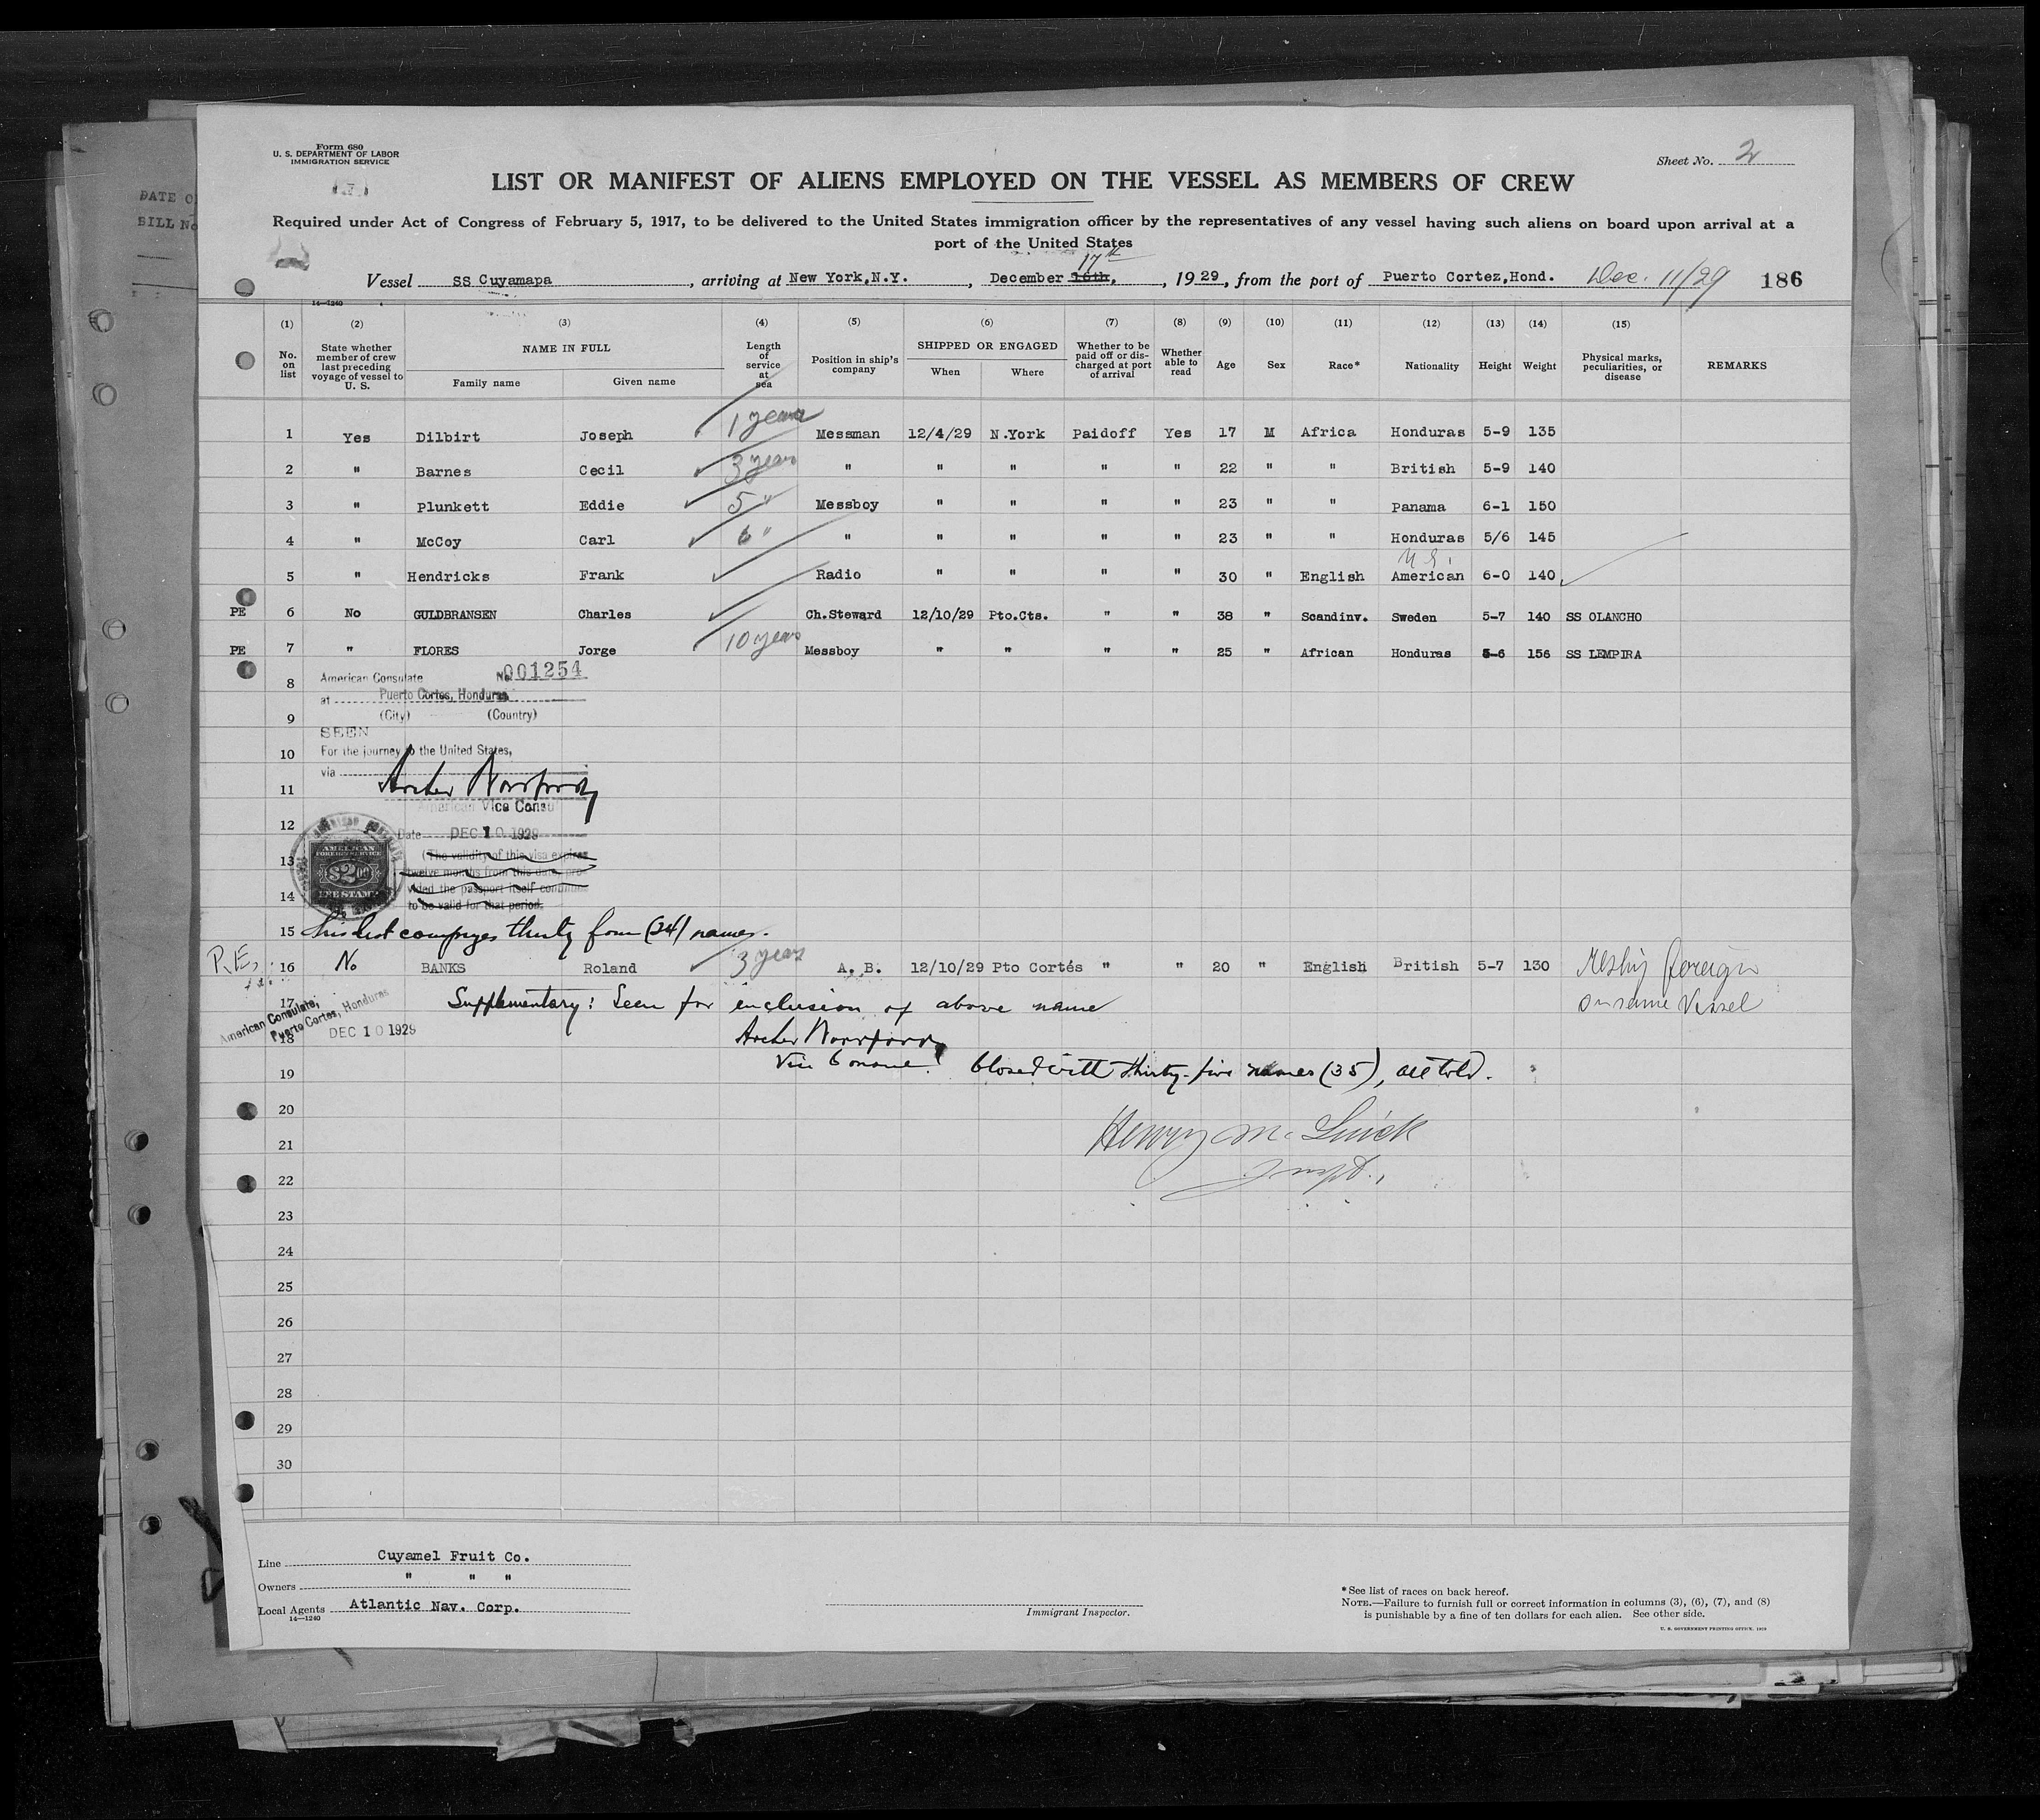 DATE O
BILL No
Form 680
U. S. DEPARTMENT OF LABOR
IMMIGRATION SERVICE
Sheet No. 2
LIST OR MANIFEST OF ALIENS EMPLOYED ON THE VESSEL AS MEMBERS OF CREW
Required under Act of Congress of February 5, 1917, to be delivered to the United States immigration officer by the representatives of any vessel having such aliens on board upon arrival at a
port of the United States
17th
Vessel SS Cuyamapa, arriving at New York,N.Y., December 16th, , 1929, from the port of Puerto Cortez,Hond. Dec. 11/29 186
14—1240
(1) (2) (3) (4) (5) (6) (7) (8) (9) (10) (11) (12) (13) (14) (15)
No. on list State whether member of crew last preceding voyage of vessel to U. S. NAME IN FULL Family name Given name Length of service at sea Position in ship's company SHIPPED OR ENGAGED When Where Whether to be paid off or discharged at port of arrival Whether able to read Age Sex Race* Nationality Height Weight Physical marks, peculiarities, or disease REMARKS
1 Yes Dilbirt Joseph 1 years Messman 12/4/29 N.York Paidoff Yes 17 M Africa Honduras 5-9 135
2 " Barnes Cecil 3 years " " " " " 22 " " British 5-9 140
3 " Plunkett Eddie 5 " Messboy " " " " 23 " " Panama 6-1 150
4 " McCoy Carl 6 " " " " " " 23 " " Honduras 5/6 145
U.S.
5 " Hendricks Frank Radio " " " " 30 " English American 6-0 140
PE 6 No GULDBRANSEN Charles Ch.Steward 12/10/29 Pto.Cts. " " 38 " Scandinv. Sweden 5-7 140 SS OLANCHO
PE 7 " FLORES Jorge 10 years Messboy " " " " 25 " African Honduras 5-6 156 SS LEMPIRA
8 American Consulate No. 001254
at Puerto Cortes, Honduras
9 (City) (Country)
SEEN
10 For the journey to the United States,
via
11 Archer
American Vice Consul
12 Date DEC 10 1929
13 (The validity of this visa expires
twelve months from this date, pro-
vided the passport itself continues
14 to be valid for that period.
AMERICAN
FOREIGN SERVICE
$2.00
FEE STAMP
15 This list comprises thirty four (34) names.
P.E. 16 No BANKS Roland 3 years A. B. 12/10/29 Pto Cortés " " 20 " English British 5-7 130 Reship foreign
17 Supplementary: Seen for inclusion of above name on same Vessel
American Consulate,
Puerto Cortes, Honduras
DEC 10 1929
18 Archer
19 Vice Consul. Closed with thirty-five names (35), all told.
20
21 Henry Mc
22 Inspt.
23
24
25
26
27
28
29
30
Line Cuyamel Fruit Co.
Owners " " "
Local Agents Atlantic Nav. Corp.
14—1240
Immigrant Inspector.
*See list of races on back hereof.
NOTE.—Failure to furnish full or correct information in columns (3), (6), (7), and (8)
is punishable by a fine of ten dollars for each alien. See other side.
U. S. GOVERNMENT PRINTING OFFICE: 1929